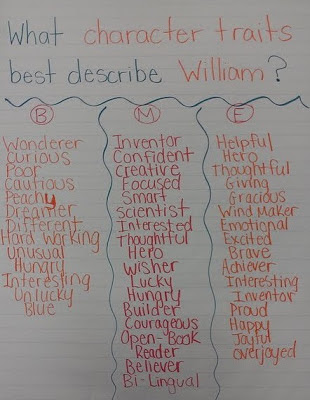 What character traits
best describe William?
B
Wonderer
Curious
Poor
Cautious
Peachy
Dreamer
Different
Hard Working
Unusual
Hungry
Interesting
Unlucky
Blue
M
Inventor
Confident
Creative
Focused
Smart
Scientist
Interested
Thoughtful
Hero
Wisher
Lucky
Hungry
Builder
Courageous
Open-Book
Reader
Believer
Bi-Lingual
E
Helpful
Hero
Thoughtful
Giving
Gracious
Wind Maker
Emotional
Excited
Brave
Achiever
Interesting
Inventor
Proud
Happy
Joyful
overjoyed